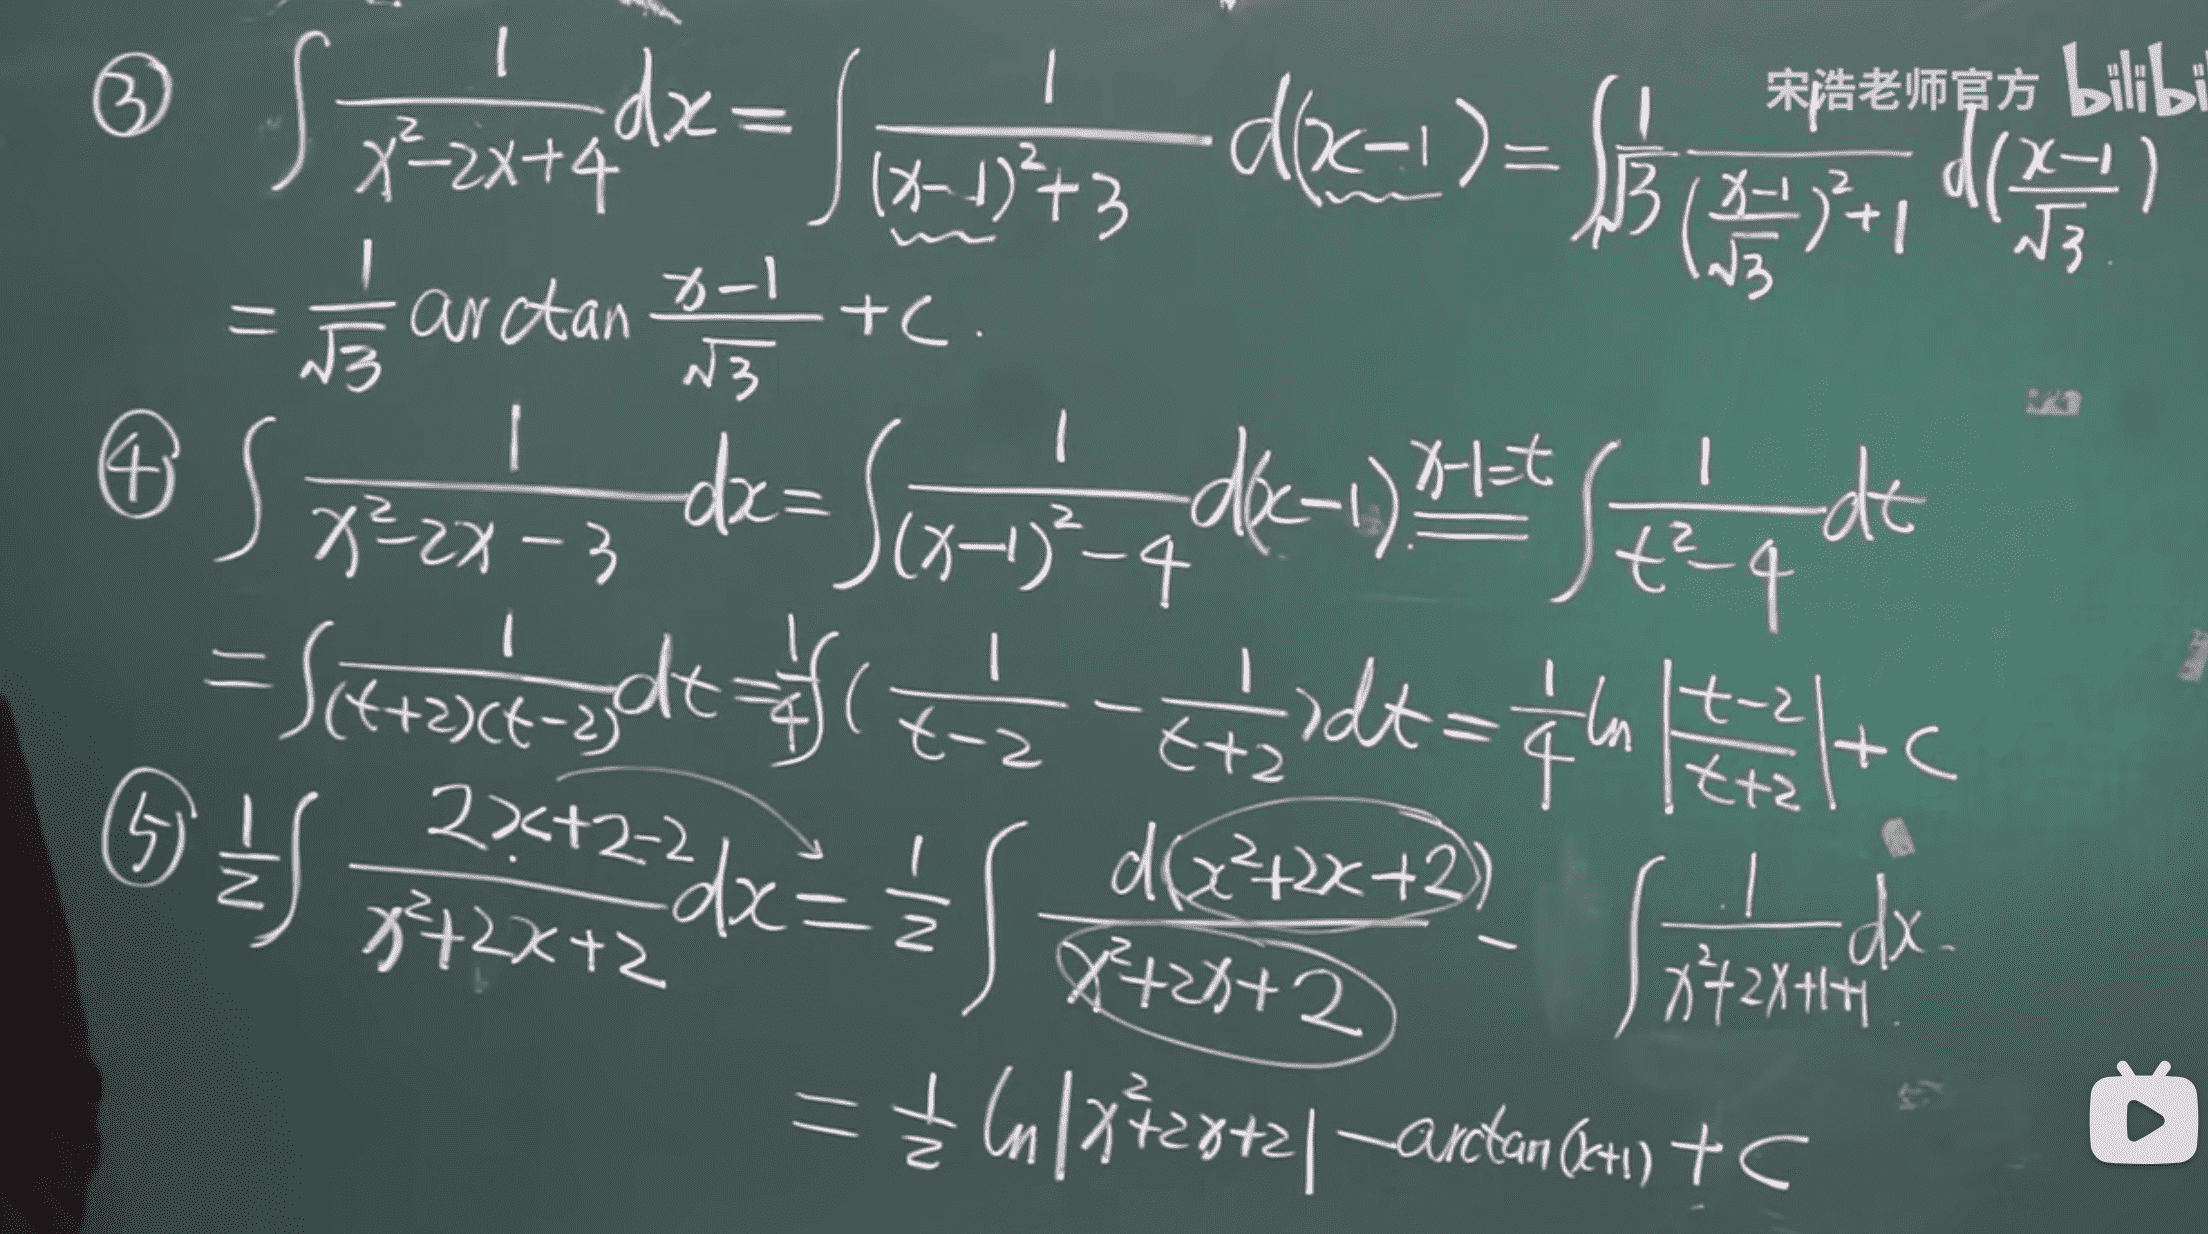 宋浩老师官方 bilibili
③ ∫ 1/(x²-2x+4) dx = ∫ 1/((x-1)²+3) d(x-1) = ∫ 1/√3 1/(((x-1)/√3)²+1) d((x-1)/√3)
= 1/√3 arctan (x-1)/√3 + C.
④ ∫ 1/(x²-2x-3) dx = ∫ 1/((x-1)²-4) d(x-1) x-1=t ∫ 1/(t²-4) dt
= ∫ 1/((t+2)(t-2)) dt = 1/4 ∫ ( 1/(t-2) - 1/(t+2) ) dt = 1/4 ln |(t-2)/(t+2)| + C
⑤ 1/2 ∫ (2x+2-2)/(x²+2x+2) dx = 1/2 ∫ d(x²+2x+2)/(x²+2x+2) - ∫ 1/(x²+2x+1+1) dx
= 1/2 ln|x²+2x+2| - arctan(x+1) + C